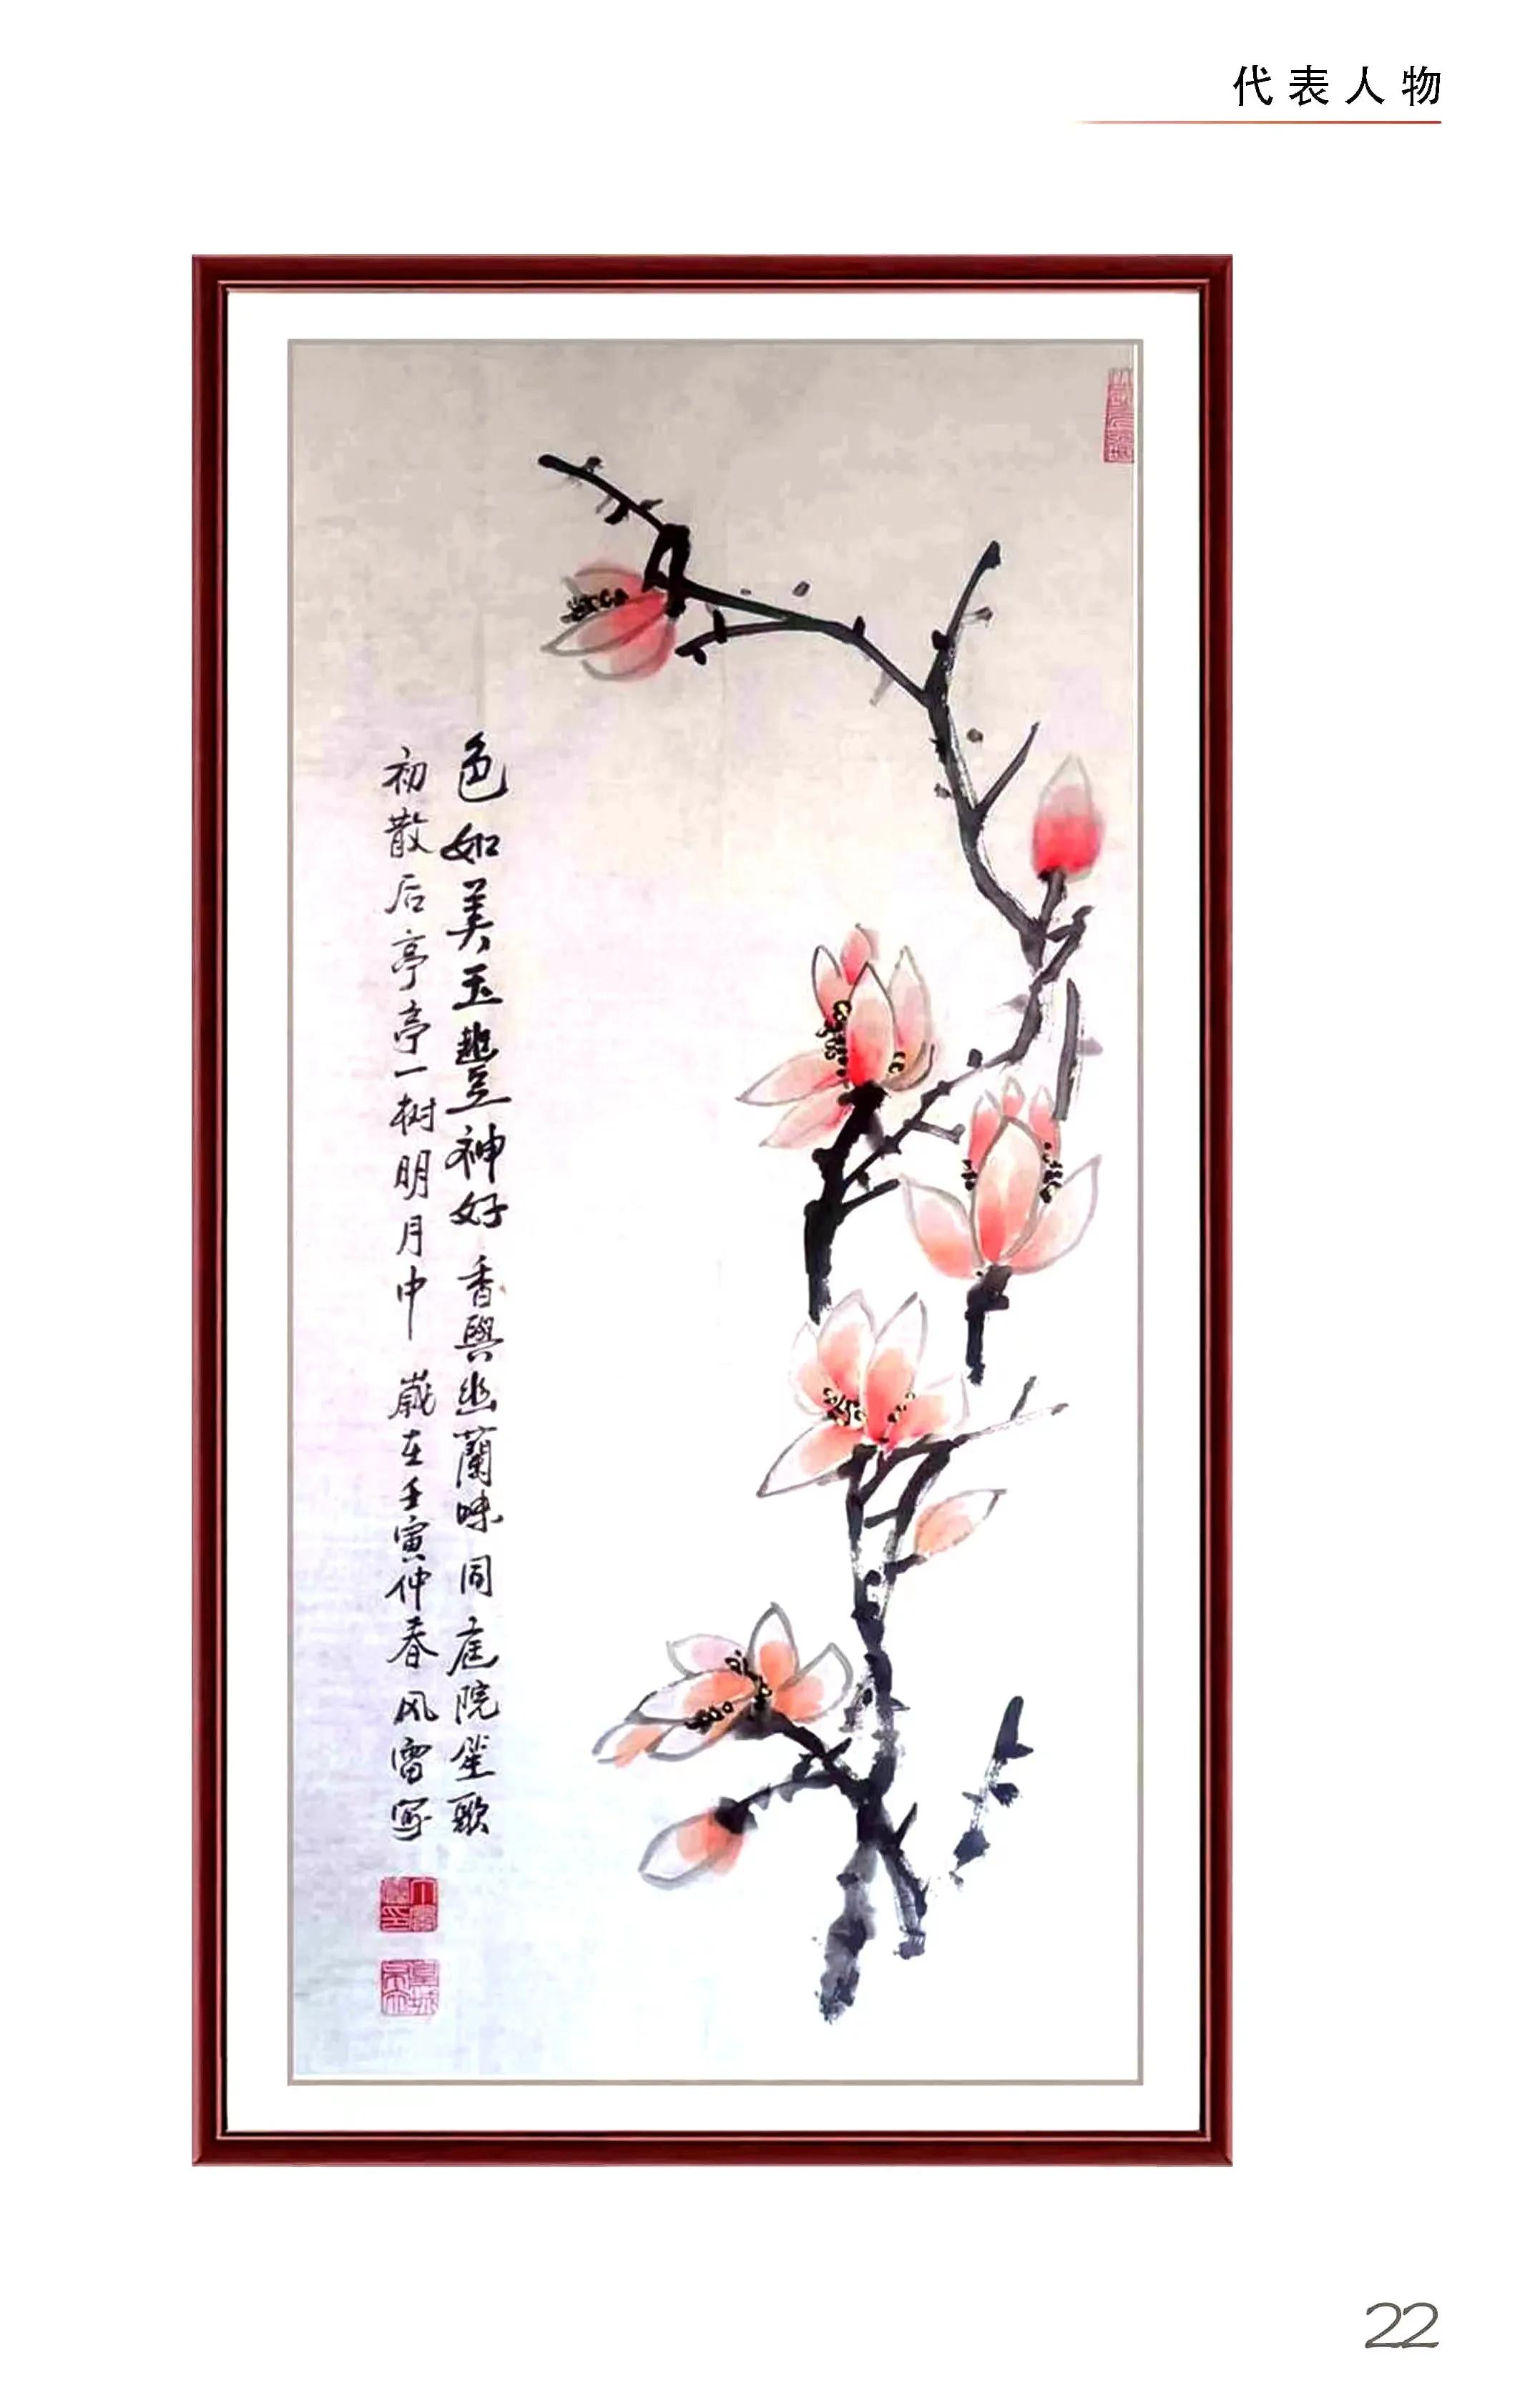 代表人物
色如美玉豐神好 香與幽蘭味同 庭院笙歌
初散后亭亭一树明月中 歲在壬寅仲春 风雷寫
22